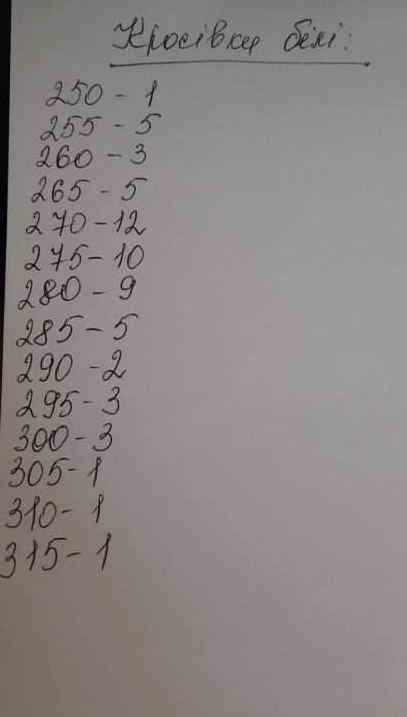 Кросівки білі:
250 - 1
255 - 5
260 - 3
265 - 5
270 - 12
275 - 10
280 - 9
285 - 5
290 - 2
295 - 3
300 - 3
305 - 1
310 - 1
315 - 1